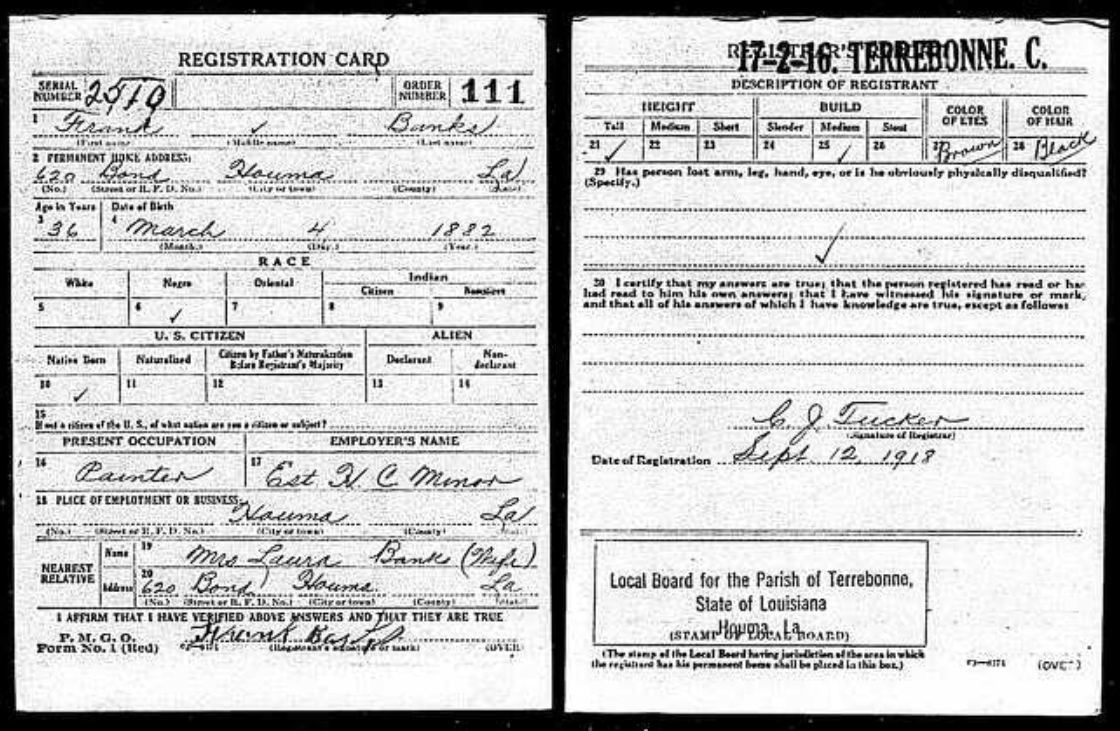 REGISTRATION CARD
SERIAL NUMBER 2510 ORDER NUMBER 111
1 Frank ✓ Banks
(First name) (Middle name) (Last name)
2 PERMANENT HOME ADDRESS:
620 Bond Houma La
(No.) (Street or R. F. D. No.) (City or town) (County) (State)
Age in Years Date of Birth
3 36 4 March 4 1882
(Month.) (Day.) (Year.)
RACE
White Negro Oriental Indian
Citizen Noncitizen
5 6 ✓ 7 8 9
U. S. CITIZEN ALIEN
Native Born Naturalized Citizen by Father's Naturalization Before Registrant's Majority Declarant Non-declarant
10 ✓ 11 12 13 14
15
If not a citizen of the U. S., of what nation are you a citizen or subject?
PRESENT OCCUPATION EMPLOYER'S NAME
16 Painter 17 Est H C Minor
18 PLACE OF EMPLOYMENT OR BUSINESS:
Houma La
(No.) (Street or R. F. D. No.) (City or town) (County) (State)
NEAREST RELATIVE Name 19 Mrs Laura Banks (Wife)
Address 20 620 Bond Houma La
(No.) (Street or R. F. D. No.) (City or town) (County) (State)
I AFFIRM THAT I HAVE VERIFIED ABOVE ANSWERS AND THAT THEY ARE TRUE
P. M. G. O.
Form No. 1 (Red) Frank (Registrant's signature or mark) (OVER)
REGISTRAR'S
17-2-16. TERREBONNE. C.
DESCRIPTION OF REGISTRANT
HEIGHT BUILD COLOR OF EYES COLOR OF HAIR
Tall Medium Short Slender Medium Stout
21 ✓ 22 23 24 25 ✓ 26 27 Brown 28 Black
29 Has person lost arm, leg, hand, eye, or is he obviously physically disqualified?
(Specify.)
✓
30 I certify that my answers are true; that the person registered has read or has
had read to him his own answers; that I have witnessed his signature or mark,
and that all of his answers of which I have knowledge are true, except as follows:
C. J. Tucker
(Signature of Registrar)
Date of Registration Sept 12, 1918
Local Board for the Parish of Terrebonne,
State of Louisiana
Houma, La.
(STAMP OF LOCAL BOARD)
(The stamp of the Local Board having jurisdiction of the area in which
the registrant has his permanent home shall be placed in this box.)
(OVER)